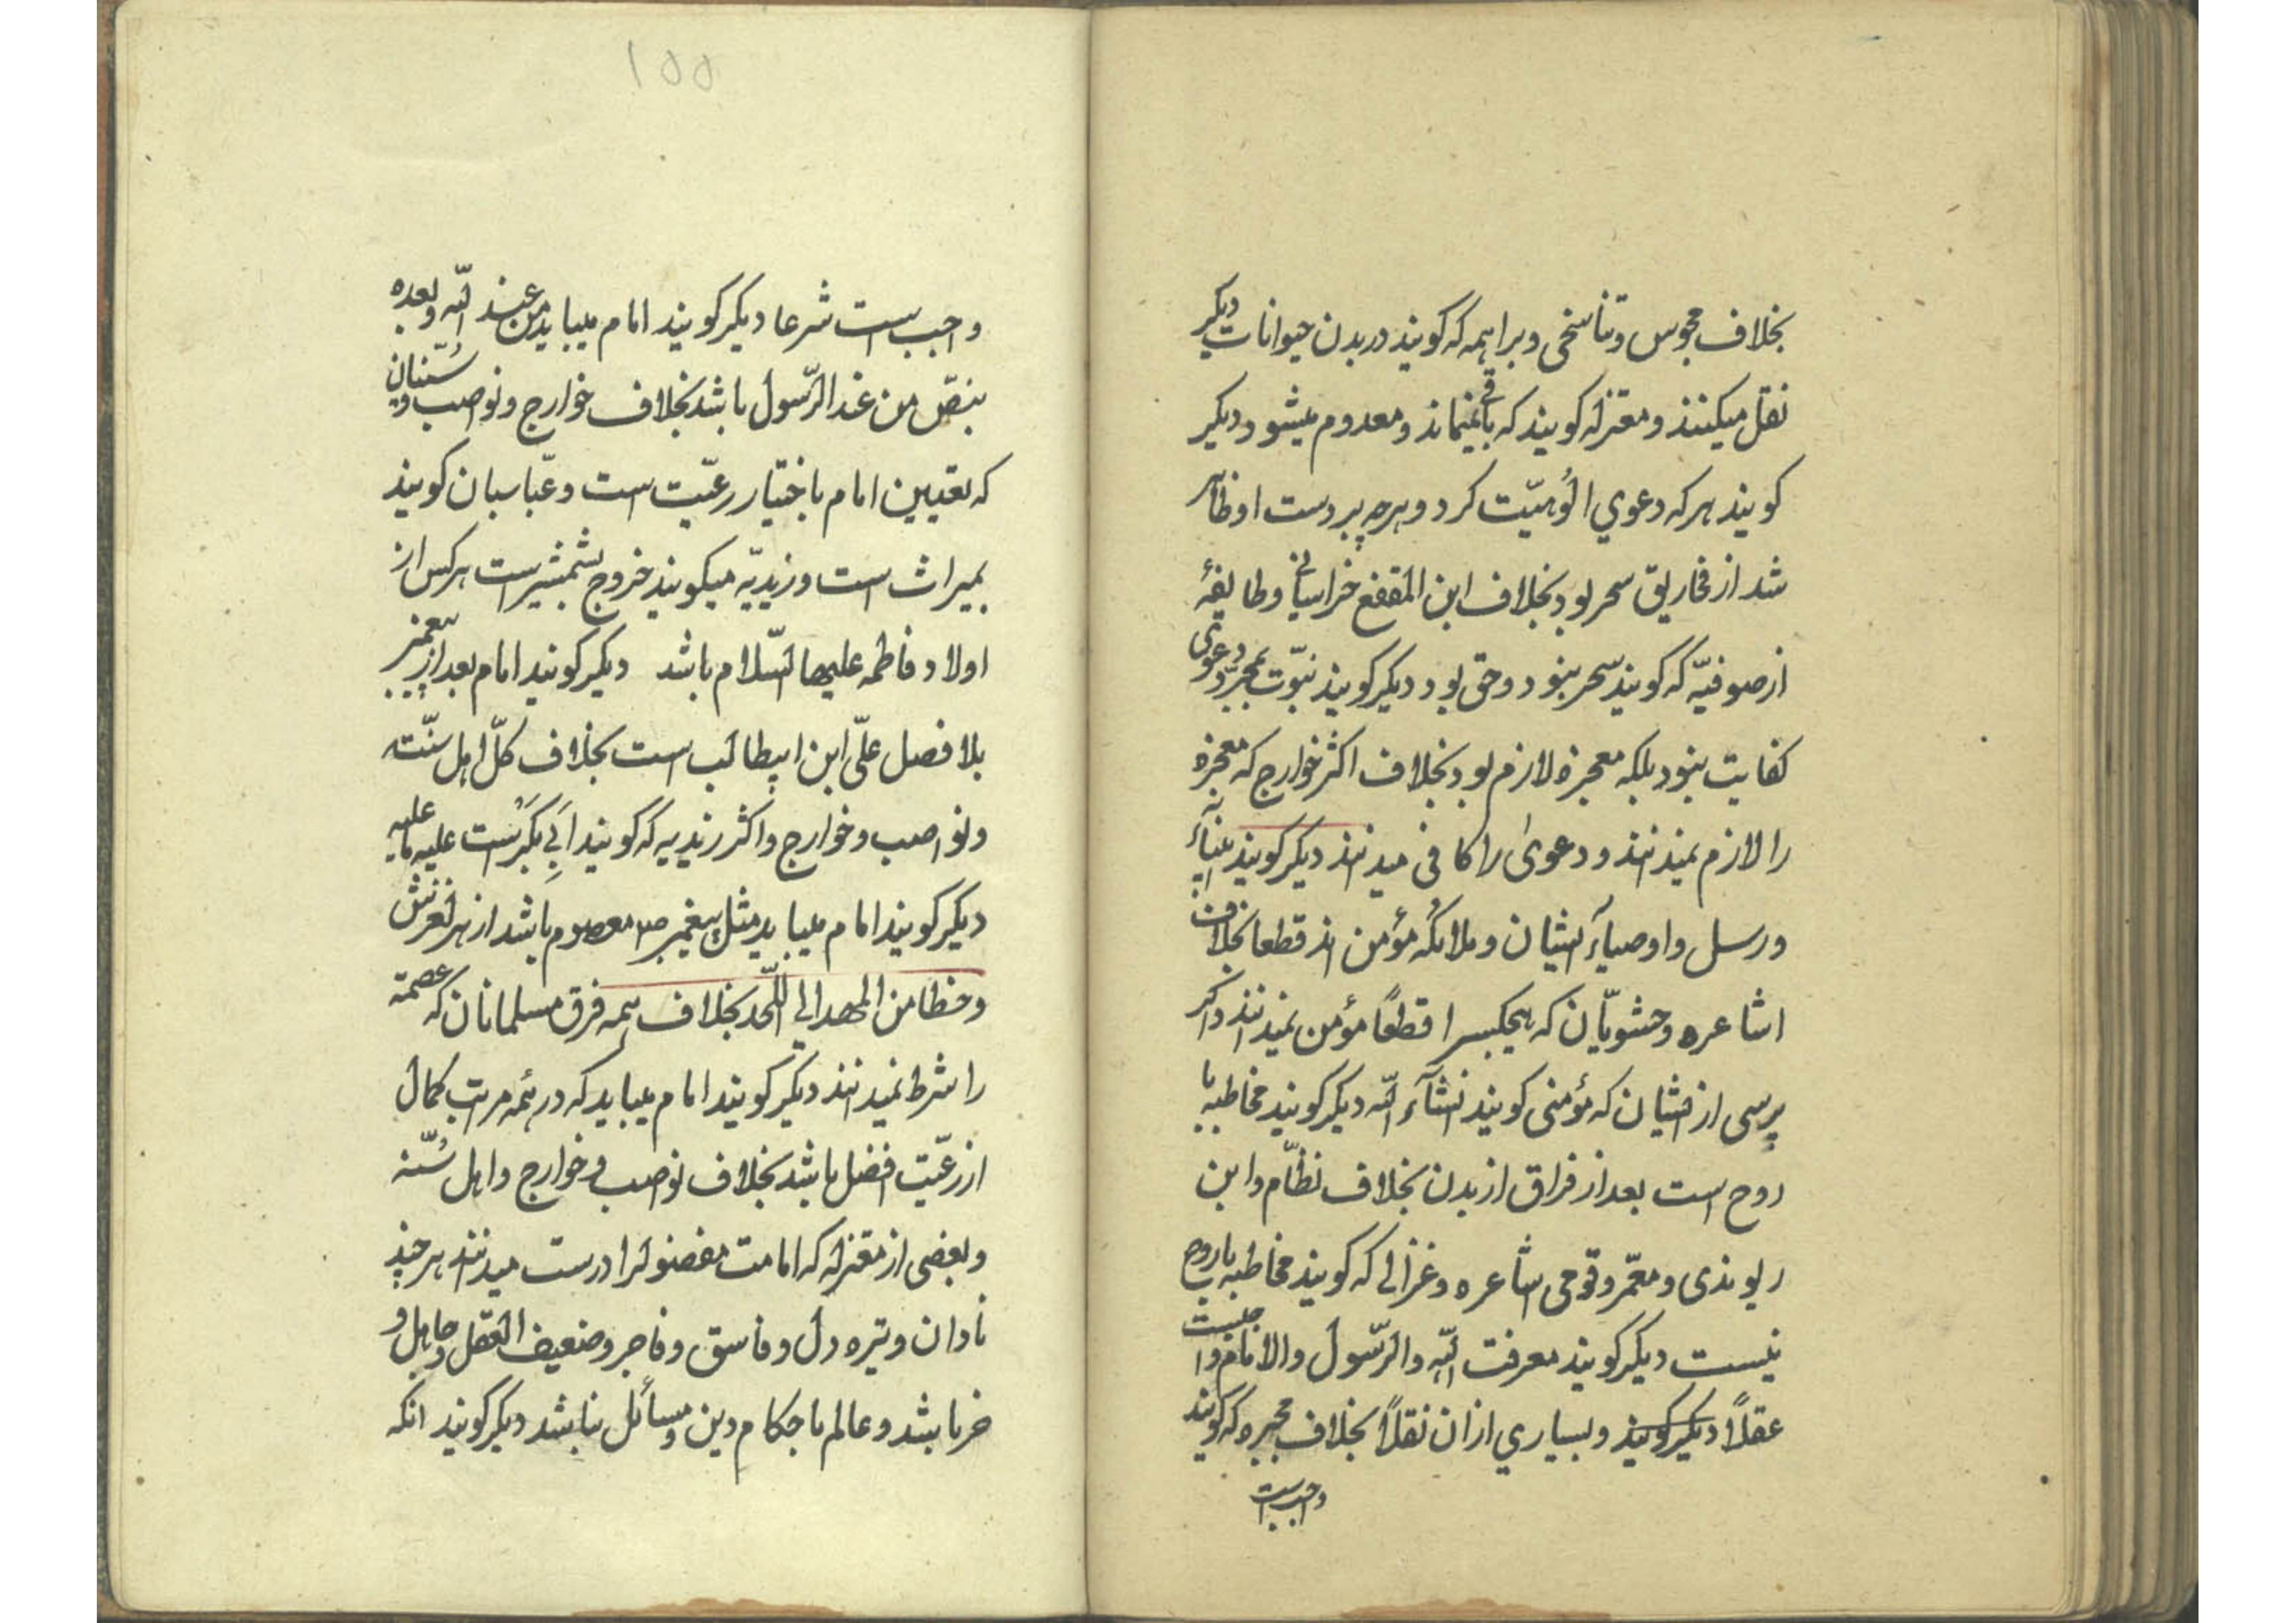 بخلاف مجوس و تناسخی و براهمه که کویند در بدن حیوانات دیکر
نقل میکنند و معتزله کویند که باقی نمیماند و معدوم میشود دیکر
کویند هر که دعوي الُوهیّت کرد و هرچه بر دست او ظاهر
شد از مخاریق سحر بود بخلاف ابن المقفع خراسانی و طایفهٔ
از صوفیّه که کویند سحر نبود و حق بود دیکر کویند نبوّت بمجرّد دعوی
کفایت نبود بلکه معجزه لازم بود بخلاف اکثر خوارج که معجزه
را لازم نمیدانند و دعوی را کافی میدانند دیکر کویند انبیآء
و رسل و اوصیاء ایشان و ملائکه مؤمن اند قطعا بخلاف
اشاعره و حشویّان که هیچکس را قطعًا مؤمن نمیدانند و اکر
پرسی از ایشان که مؤمنی کویند انشآء الله دیکر کویند مخاطبه با
روح است بعد از فراق از بدن بخلاف نظّام و ابن
ریوندی و معمّر و قومی اشاعره و غزالی که کویند مخاطبه با روح
نیست دیکر کویند معرفت الله و الرّسول و الامام واجبست
عقلاً دیکر کویند و بسیاري ازان نقلاً بخلاف مجبره که کویند
واجب است
۱۵۵
واجب است شرعا دیکر کویند امام میباید من عند الله و بعده
بنصّ من عند الرّسول باشد بخلاف خوارج و نواصب و سُنّیان
که تعیین امام باختیار رعیّت است و عبّاسیان کویند
بمیراث است و زیدیّه میکویند خروج بشمشیر است هر کس از
اولاد فاطمه علیها السّلام باشد دیکر کویند امام بعد از پیغمبر
بلا فصل علّی ابن ابیطالب است بخلاف کلّ اهل سنّت
و نواصب و خوارج و اکثر زیدیه که کویند اَبی بَکرَست علیه ما علیه
دیکر کویند امام میباید مثل پیغمبر ص معصوم باشد از هر لغزش
و خطا من المهد الی اللّحد بخلاف همه فرق مسلمانان که عصمة
را شرط نمیدانند دیکر کویند امام میباید که در همه مراتب کمال
از رعیّت افضل باشد بخلاف نواصب و خوارج و اهل سُنّة
و بعضی از معتزله که امامت مفضول را درست میدانند هر چند
نادان و تیره دل و فاسق و فاجر و ضعیف العقل و جاهل و
خر باشد و عالم باحکام دین و مسائل نباشد دیکر کویند انکه